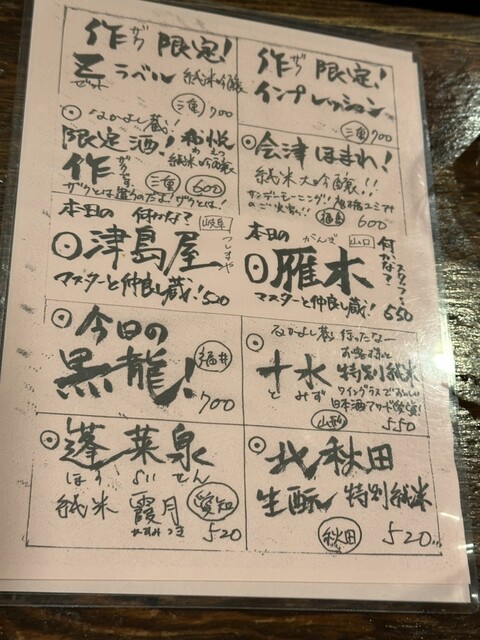 作 ザク 限定!
Z ラベル 純米吟醸
ゼット
三重 700
作 ザク 限定!
インプレッション
三重 700
なかよし蔵!
限定酒! 和悦
純米吟醸
作 三重 600
ザクとは違うのだよ!ザクとは!
会津ほまれ!
純米大吟醸!!
福島 600
本日の 何かな? 岐阜
津島屋 つしまや
マスターと仲良し蔵! 520
本日の がんぎ 山口 何かな?
雁木
マスターと仲良し蔵! 550
今日の
黒龍! 福井
700
なかよし蔵 行ったなー
十水 特別純米
とみず ワイングラスでおいしい
日本酒アワード受賞!
山形 550
蓬莱泉
ほうらいせん
純米 霞月 愛知
かすみつき 520
北秋田
生酛 特別純米
秋田 520